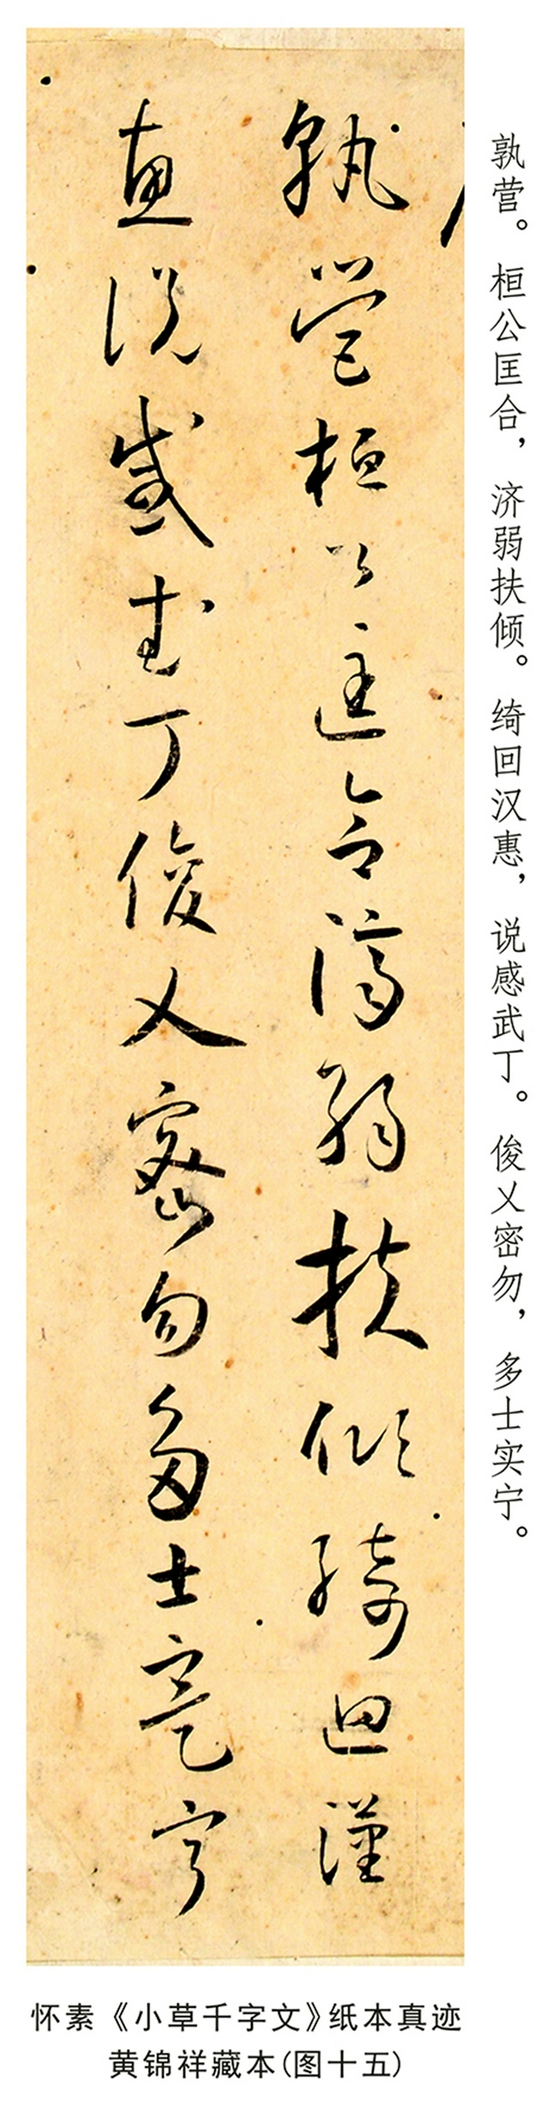 孰营。桓公匡合，济弱扶倾。绮回汉惠，说感武丁。俊乂密勿，多士实宁。
孰營桓公匡合濟弱扶傾綺迴漢
惠說感武丁俊乂密勿多士寔寧
怀素《小草千字文》纸本真迹
黄锦祥藏本(图十五)